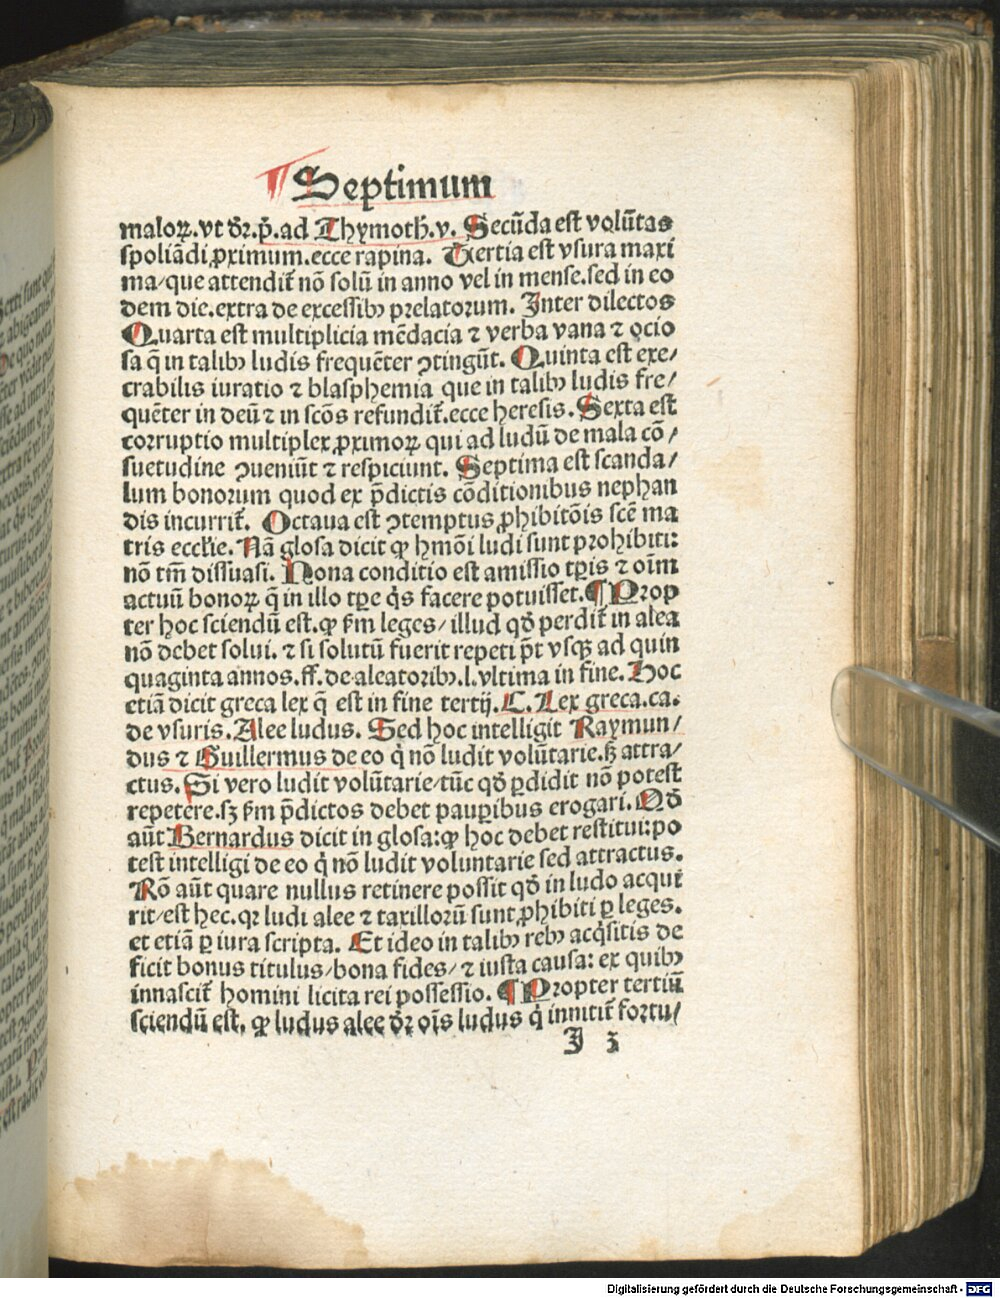 Septimum
maloꝝ. vt dr̄. p̄. ad Thymoth̄. v. Secūda est volūtas
spoliādi ꝓximum. ecce rapina. Tertia est vsura maxi
ma/que attendit̄ nō solū in anno vel in mense. sed in eo
dem die. extra de excessibꝰ prelatorum. Inter dilectos
Quarta est multiplicia mēdacia ⁊ verba vana ⁊ ocio
sa q̄ in talibꝰ ludis frequēter ꝯtingūt. Quinta est exe/
crabilis iuratio ⁊ blasphemia que in talibꝰ ludis fre/
quēter in deū ⁊ in scōs refundit̄. ecce heresis. Sexta est
corruptio multiplex ꝓximoꝝ qui ad ludū de mala cō/
suetudine ꝯueniūt ⁊ respiciunt. Septima est scanda/
lum bonorum quod ex p̄dictis cōditionibus nephan
dis incurrit̄. Octaua est ꝯtemptus ꝓhibitōis scē ma
tris eccl̄ie. Nā glosa dicit ꝙ hmōi ludi sunt prohibiti:
nō tm̄ dissuasi. Nona conditio est amissio tp̄is ⁊ oīm
actuū bonoꝝ q̄ in illo tp̄e q̇s facere potuisset. ¶ Prop
ter hoc sciendū est. ꝙ ẜm leges/ illud qd̄ perdit̄ in alea
nō debet solui. ⁊ si solutū fuerit repeti p̄t vsqꝫ ad quin
quaginta annos. ff. de aleatoribꝰ. l. vltima in fine. Hoc
etiā dicit greca lex q̄ est in fine tertij. C. Lex greca. ca.
de vsuris. Alee ludus. Sed hoc intelligit Raymun/
dus ⁊ Guillermus de eo q̇ nō ludit volūtarie. sꝫ attra/
ctus. Si vero ludit volūtarie/tūc qd̄ ꝑdidit nō potest
repetere. sꝫ ẜm p̄dictos debet pauꝑibus erogari. Qd̄
aūt Bernardus dicit in glosa: ꝙ hoc debet restitui: po
test intelligi de eo q̇ nō ludit voluntarie sed attractus.
Rō aūt quare nullus retinere possit qd̄ in ludo acqui
rit/est hec. qꝛ ludi alee ⁊ taxillorū sunt ꝓhibiti ꝑ leges.
et etiā ꝑ iura scripta. Et ideo in talibꝰ rebꝰ acq̇sitis de
ficit bonus titulus/bona fides/⁊ iusta causa: ex quibꝰ
innascit̄ homini licita rei possessio. ¶ Propter tertiū
sciendū est. ꝙ ludus alee dr̄ oīs ludus q̇ innitit̄ fortu/
I 3
Digitalisierung gefördert durch die Deutsche Forschungsgemeinschaft - DFG